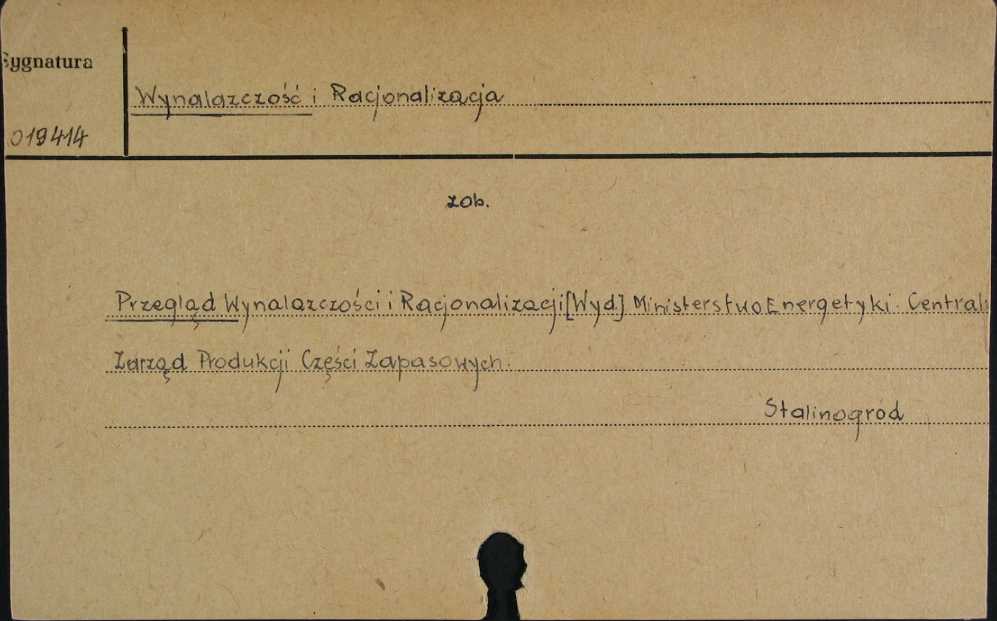 Sygnatura
Wynalazczość i Racjonalizacja
019414
zob.
Przegląd Wynalazczości i Racjonalizacji [Wyd] Ministerstwo Energetyki. Central
Zarząd Produkcji Części Zapasowych.
Stalinogród